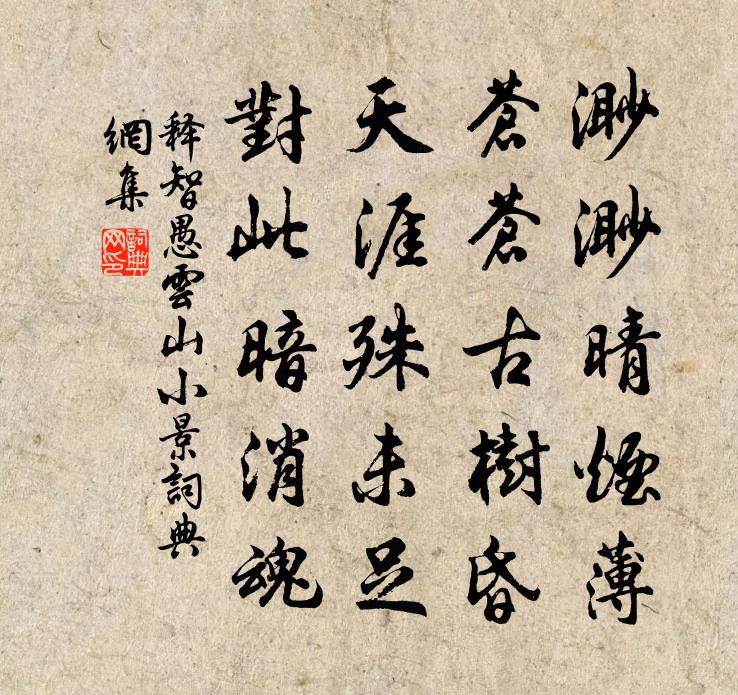 渺渺晴煙薄
蒼蒼古樹昏
天涯殊未足
對此暗消魂
释智愚雲山小景詞典
網集
詞典
网印